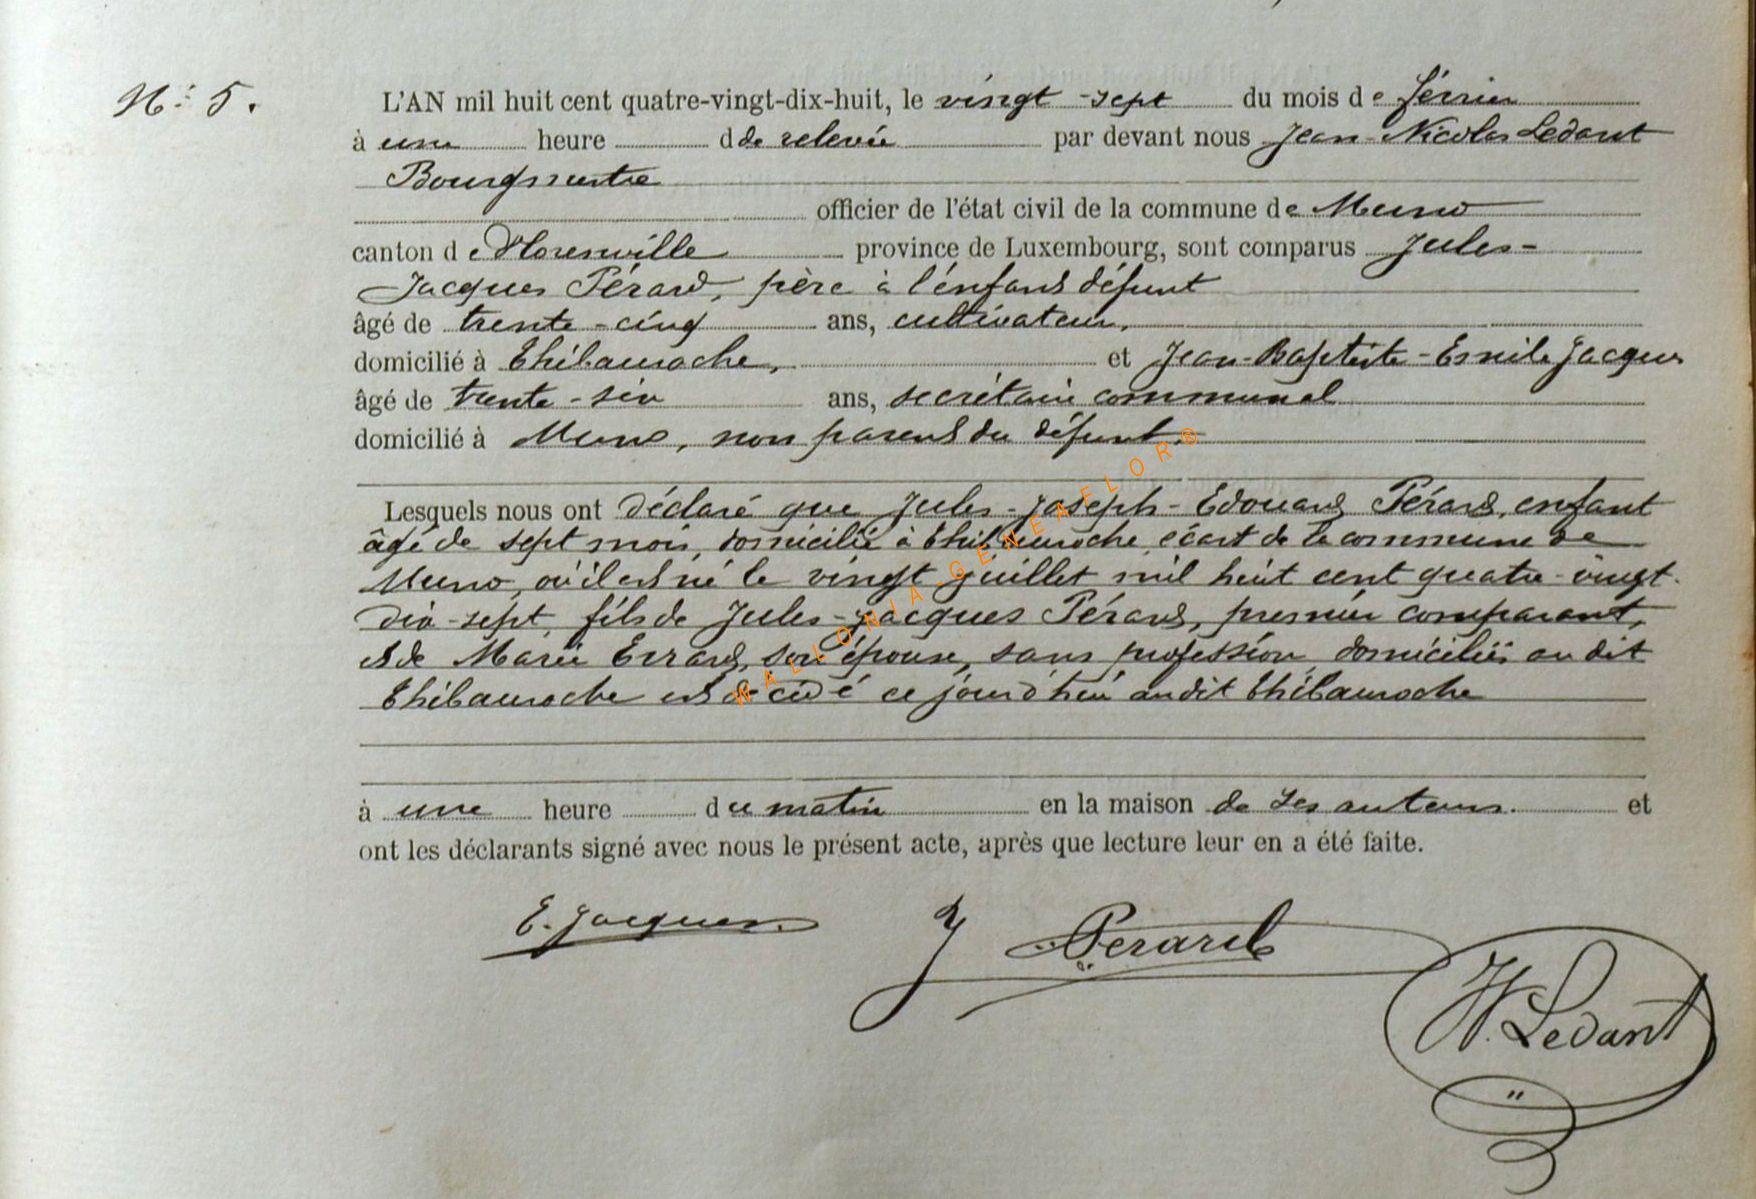 N° 5.
L'AN mil huit cent quatre-vingt-dix-huit, le vingt-sept du mois de février
à une heure d de relevée par devant nous Jean-Nicolas Ledant
Bourgmestre
officier de l'état civil de la commune de Muno
canton de Florenville province de Luxembourg, sont comparus Jules-
Jacques Pérard, père à l'enfant défunt
âgé de trente-cinq ans, cultivateur,
domicilié à Thibauroche, et Jean-Baptiste-Emile Jacques
âgé de trente-six ans, secrétaire communal
domicilié à Muno, non parent du défunt.
Lesquels nous ont déclaré que Jules-Joseph-Edouard Pérard, enfant
âgé de sept mois, domicilié à Thibauroche, écart de la commune de
Muno, où il est né le vingt juillet mil huit cent quatre-vingt-
dix-sept, fils de Jules-Jacques Pérard, premier comparant,
et de Marie Errard, son épouse, sans profession, domiciliés au dit
Thibauroche est décédé ce jourd'hui audit Thibauroche
à une heure du matin en la maison de ses auteurs. et
ont les déclarants signé avec nous le présent acte, après que lecture leur en a été faite.
E. Jacques
J Pérard
N. Ledant
WALLONIA-GENEAELOR®